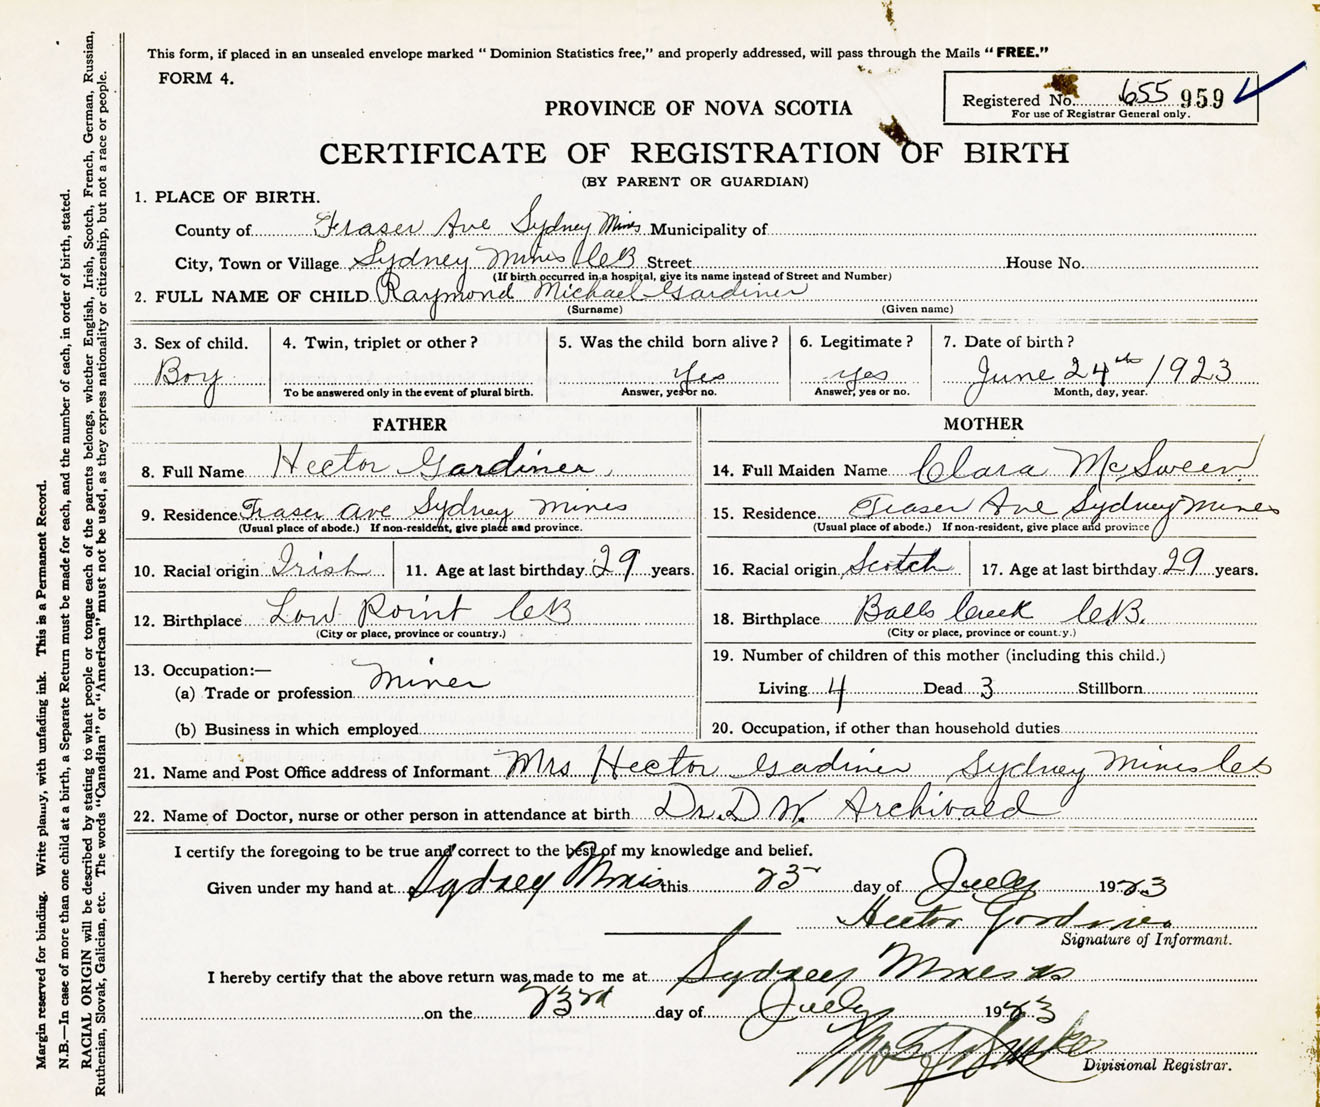 This form, if placed in an unsealed envelope marked " Dominion Statistics free," and properly addressed, will pass through the Mails "FREE."
FORM 4.
Registered No. 655 959
For use of Registrar General only.
PROVINCE OF NOVA SCOTIA
CERTIFICATE OF REGISTRATION OF BIRTH
(BY PARENT OR GUARDIAN)
1. PLACE OF BIRTH.
County of Fraser Ave Sydney Mines Municipality of
City, Town or Village Sydney Mines CB Street House No.
(If birth occurred in a hospital, give its name instead of Street and Number)
2. FULL NAME OF CHILD Raymond Michael Gardiner
(Surname) (Given name)
3. Sex of child. 4. Twin, triplet or other? 5. Was the child born alive? 6. Legitimate? 7. Date of birth?
Boy yes yes June 24th 1923
To be answered only in the event of plural birth. Answer, yes or no. Answer, yes or no. Month, day, year.
FATHER MOTHER
8. Full Name Hector Gardiner 14. Full Maiden Name Clara McSween
9. Residence Fraser ave Sydney Mines 15. Residence Fraser Ave Sydney Mines
(Usual place of abode.) If non-resident, give place and province. (Usual place of abode.) If non-resident, give place and province
10. Racial origin Irish 11. Age at last birthday 29 years. 16. Racial origin Scotch 17. Age at last birthday 29 years.
12. Birthplace Low Point CB 18. Birthplace Balls Creek C.B.
(City or place, province or country.) (City or place, province or country.)
13. Occupation:— 19. Number of children of this mother (including this child.)
(a) Trade or profession Miner Living 4 Dead 3 Stillborn
(b) Business in which employed 20. Occupation, if other than household duties
21. Name and Post Office address of Informant Mrs Hector Gadiner Sydney Mines CB
22. Name of Doctor, nurse or other person in attendance at birth Dr. D W. Archibald
I certify the foregoing to be true and correct to the best of my knowledge and belief.
Given under my hand at Sydney Mines this 23 day of July 1923
Hector Gardiner
Signature of Informant.
I hereby certify that the above return was made to me at Sydney Mines
on the 23rd day of July 1923
Divisional Registrar.
Margin reserved for binding. Write plainly, with unfading ink. This is a Permanent Record.
N.B.—In case of more than one child at a birth, a Separate Return must be made for each, and the number of each, in order of birth, stated.
RACIAL ORIGIN will be described by stating to what people or tongue each of the parents belongs, whether English, Irish, Scotch, French, German, Russian,
Ruthenian, Slovak, Galician, etc. The words "Canadian" or "American" must not be used, as they express nationality or citizenship, but not a race or people.